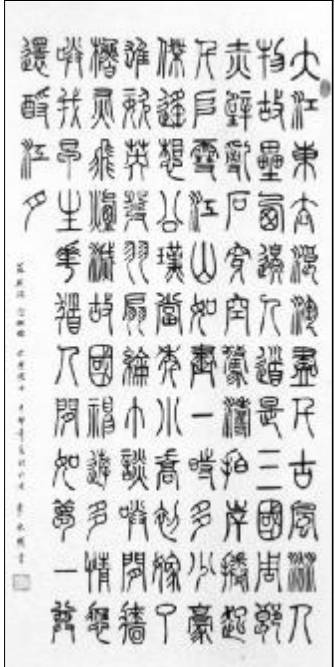 大江東去浪淘盡千古風流人
物故壘西邊人道是三國周郎
赤壁亂石穿空驚濤拍岸捲起
千堆雪江山如畫一時多少豪
傑遙想公瑾當年小喬初嫁了
雄姿英發羽扇綸巾談笑間檣
櫓灰飛煙滅故國神遊多情應
笑我早生華髮人間如夢一尊
還酹江月
蘇軾詞 念奴嬌 赤壁懷古